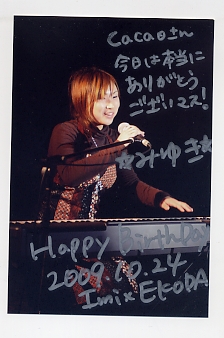 cacaoさん
今日は本当に
ありがとう
ございマス!
☆みゆき☆
Happy BirthDay
2009.10.24
Imix EKODA